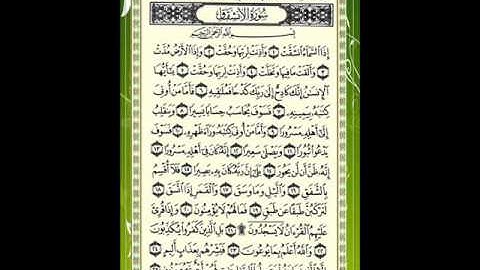 سُورَةُ الِانشِقَاقِ
بِسْمِ اللَّهِ الرَّحْمَٰنِ الرَّحِيمِ
إِذَا ٱلسَّمَآءُ ٱنشَقَّتْ ١ وَأَذِنَتْ لِرَبِّهَا وَحُقَّتْ ٢ وَإِذَا ٱلْأَرْضُ مُدَّتْ
٣ وَأَلْقَتْ مَا فِيهَا وَتَخَلَّتْ ٤ وَأَذِنَتْ لِرَبِّهَا وَحُقَّتْ ٥ يَٰٓأَيُّهَا
ٱلْإِنسَٰنُ إِنَّكَ كَادِحٌ إِلَىٰ رَبِّكَ كَدْحًا فَمُلَٰقِيهِ ٦ فَأَمَّا مَنْ أُوتِيَ
كِتَٰبَهُۥ بِيَمِينِهِۦ ٧ فَسَوْفَ يُحَاسَبُ حِسَابًا يَسِيرًا ٨ وَيَنقَلِبُ
إِلَىٰٓ أَهْلِهِۦ مَسْرُورًا ٩ وَأَمَّا مَنْ أُوتِيَ كِتَٰبَهُۥ وَرَآءَ ظَهْرِهِۦ ١٠ فَسَوْفَ
يَدْعُوا۟ ثُبُورًا ١١ وَيَصْلَىٰ سَعِيرًا ١٢ إِنَّهُۥ كَانَ فِيٓ أَهْلِهِۦ مَسْرُورًا ١٣
إِنَّهُۥ ظَنَّ أَن لَّن يَحُورَ ١٤ بَلَىٰٓ إِنَّ رَبَّهُۥ كَانَ بِهِۦ بَصِيرًا ١٥ فَلَآ أُقْسِمُ
بِٱلشَّفَقِ ١٦ وَٱلَّيْلِ وَمَا وَسَقَ ١٧ وَٱلْقَمَرِ إِذَا ٱتَّسَقَ ١٨
لَتَرْكَبُنَّ طَبَقًا عَن طَبَقٍ ١٩ فَمَا لَهُمْ لَا يُؤْمِنُونَ ٢٠ وَإِذَا قُرِئَ
عَلَيْهِمُ ٱلْقُرْءَانُ لَا يَسْجُدُونَ ۩ ٢١ بَلِ ٱلَّذِينَ كَفَرُوا۟ يُكَذِّبُونَ
٢٢ وَٱللَّهُ أَعْلَمُ بِمَا يُوعُونَ ٢٣ فَبَشِّرْهُم بِعَذَابٍ أَلِيمٍ ٢٤